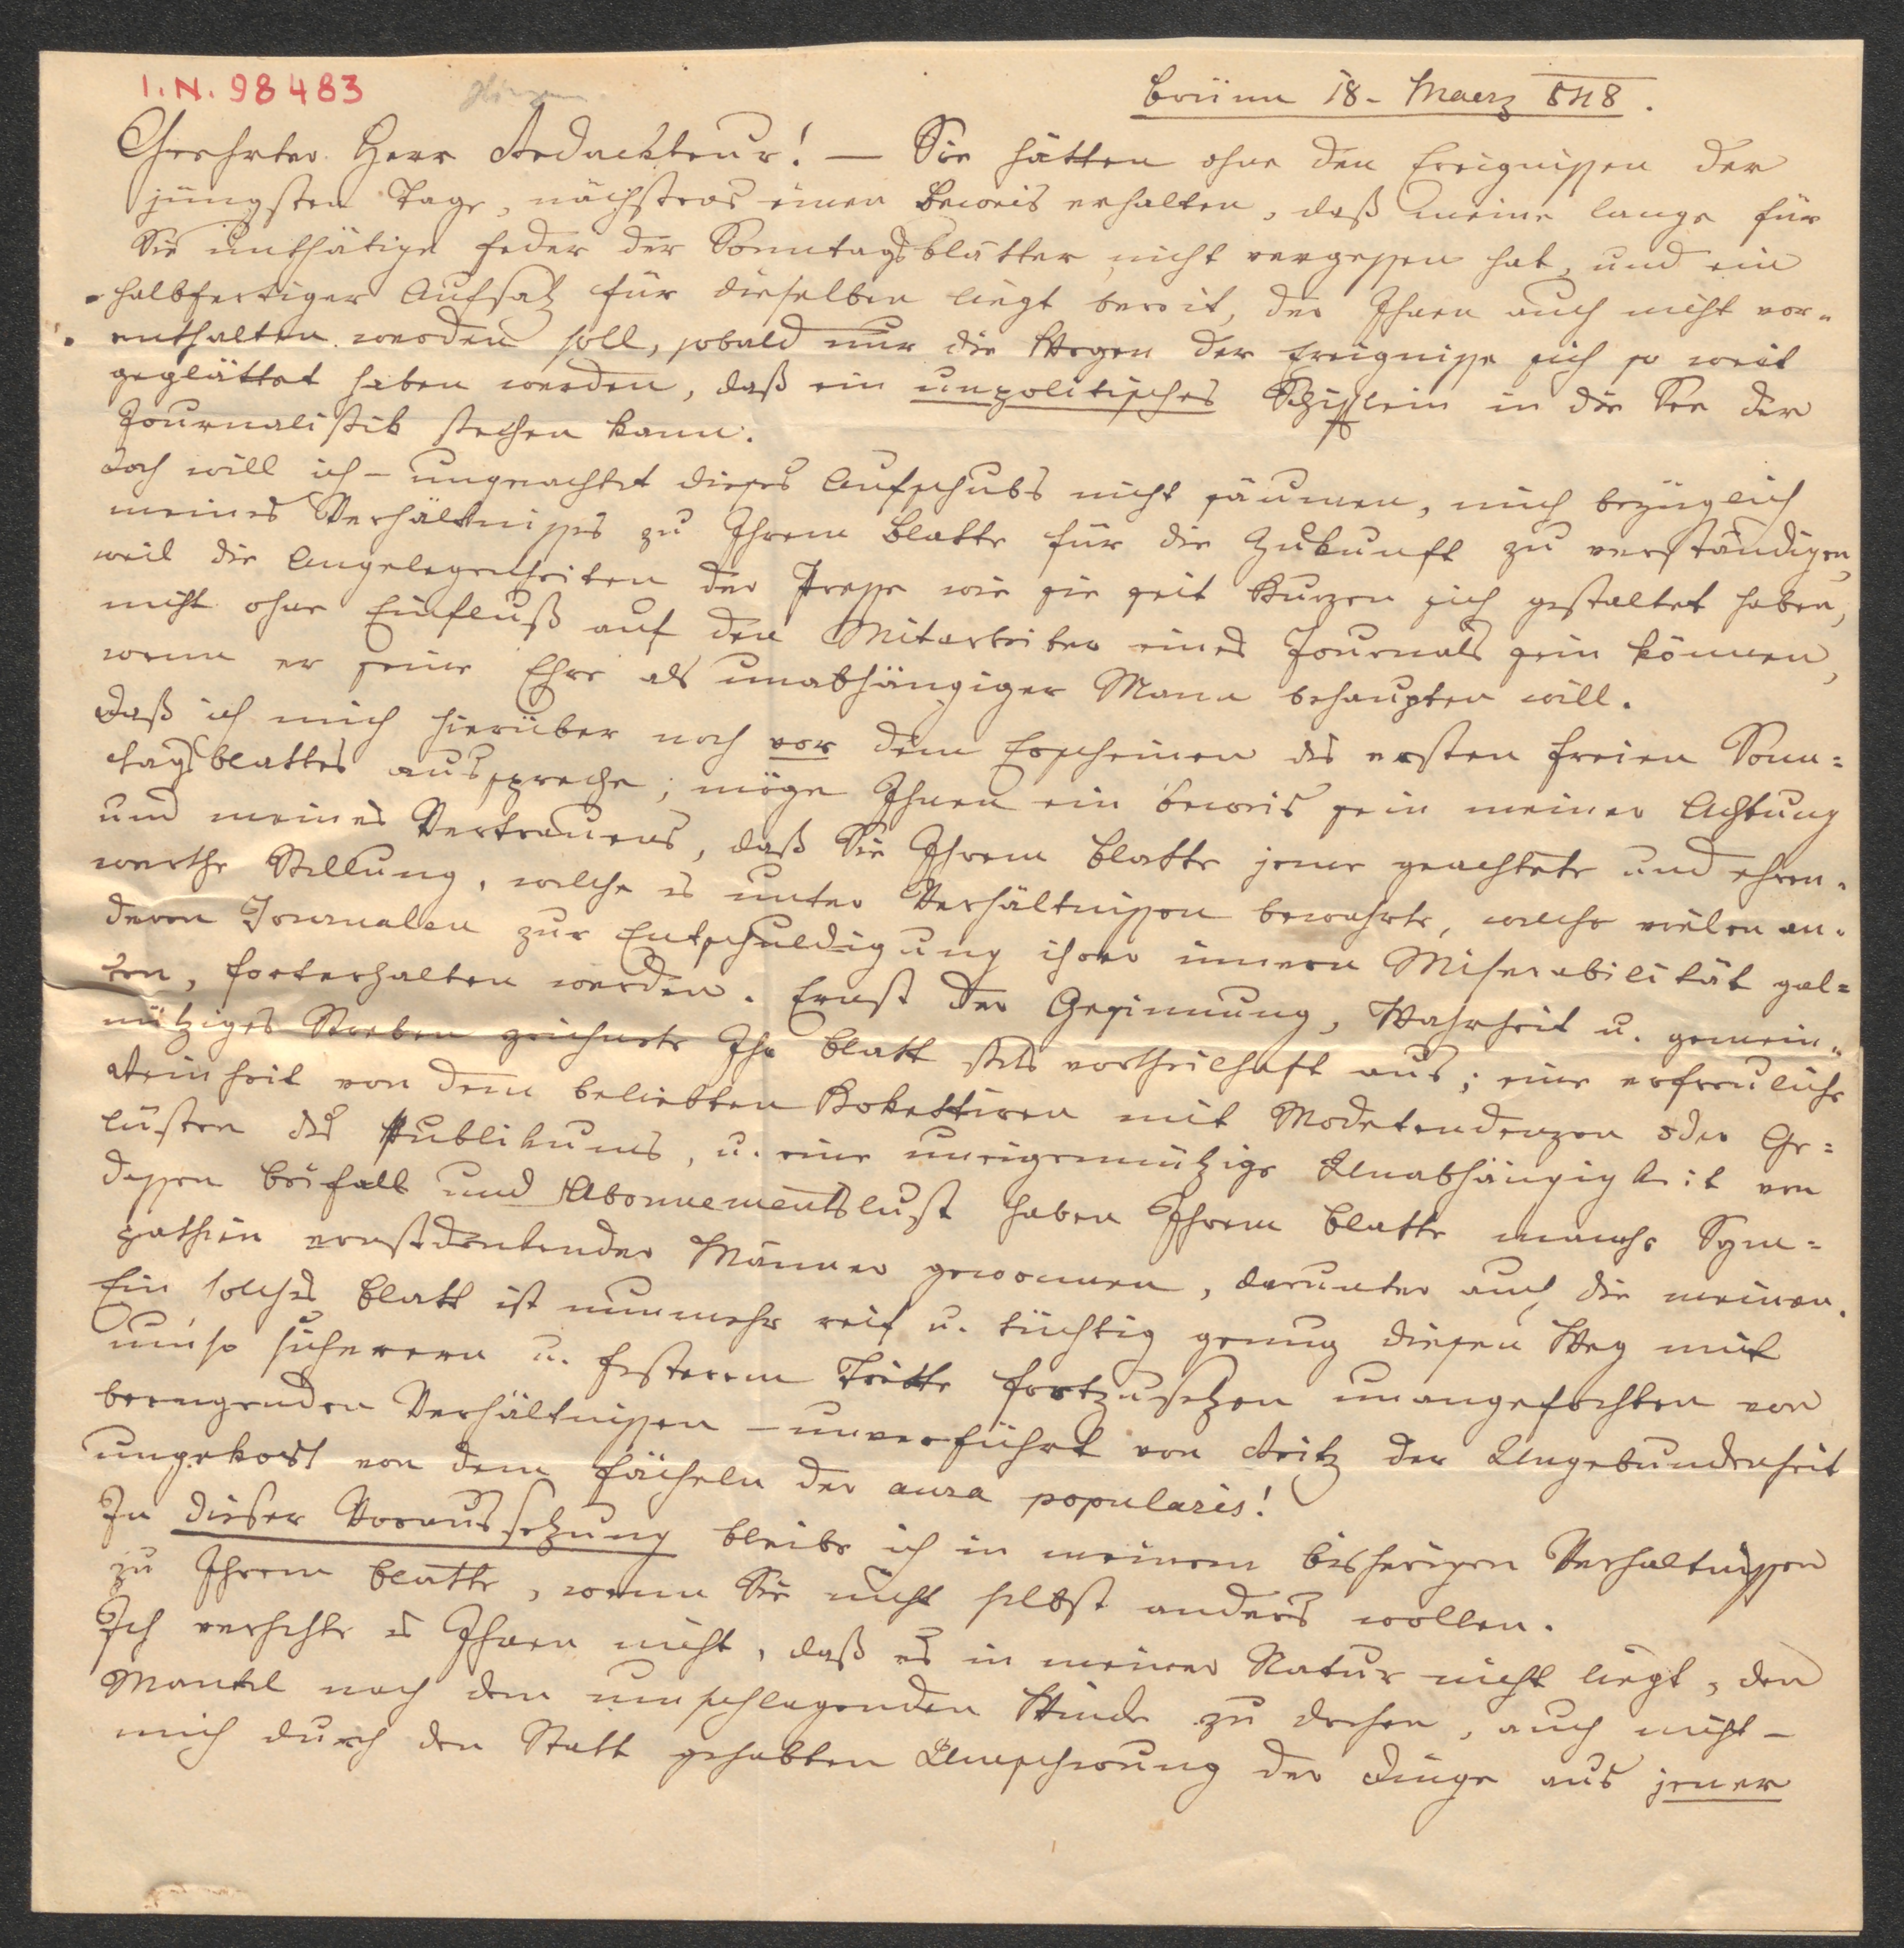 I.N. 98483
Brünn 18. Maerz 848.
Geehrter Herr Redackteur! — Sie hätten ohne den Ereignissen der
jüngsten Tage, nächstens einen Beweis erhalten, daß meine lange für
Sie unthätige Feder der Sonntagsblätter nicht vergessen hat, und ein
halbfertiger Aufsatz für dieselben liegt bereit, der Ihnen auch nicht vor=
enthalten werden soll, sobald nur die Wogen der Ereignisse sich so weit
geglättet haben werden, daß ein unpolitisches Schifflein in die See der
Journalistik stechen kann.
Doch will ich – ungeachtet dieses Aufschubs nicht säumen, mich bezüglich
meines Verhältnisses zu Ihrem Blatte für die Zukunft zu verständigen,
weil die Angelegenheiten der Presse wie sie seit Kurzen sich gestaltet haben,
nicht ohne Einfluß auf den Mitarbeiter eines Journals sein können,
wenn er seine Ehre als unabhängiger Mann behaupten will.
Daß ich mich hierüber noch vor dem Erscheinen des ersten freien Sonn=
tagsblattes ausspreche; möge Ihnen ein Beweis sein meiner Achtung
und meines Vertrauens, daß Sie Ihrem Blatte jene geachtete und ehren=
werthe Stellung, welche es unter Verhältnissen bewahrte, welche vielen an=
deren Journalen zur Entschuldigung ihrer innern Miserabilität gal=
ten, forterhalten werden. Ernst der Gesinnung, Wahrheit u. gemein=
nütziges Streben zeichnete Ihr Blatt stets vortheilhaft aus; eine erfreuliche
Reinheit von dem beliebten Kokettiren mit Modetendenzen oder Ge=
lüsten des Publikums, u. eine uneigennützige Unabhängigkeit von
dessen Beifall und Abonnementslust haben Ihrem Blatte manche Sym=
pathien ernstdenkender Männer gewonnen, darunter auch die meinen.
Ein solches Blatt ist nunmehr reif u. tüchtig genug diesen Weg mit
umso sicherern u. festerem Tritte fortzusetzen unangefochten von
beengenden Verhältnissen – unverführt von Reitz der Ungebundenheit
ungekost von dem Fächeln der aura popularis!
In dieser Voraussetzung bleibe ich in meinem bisherigen Verhältnissen
zu Ihrem Blatte, wenn Sie nicht selbst anders wollen.
Ich verhehle es Ihnen nicht, daß es in meiner Natur nicht liegt, den
Mantel nach dem umschlagenden Winde zu drehen, auch nicht –
mich durch den Statt gehabten Umschwung der Dinge aus jener